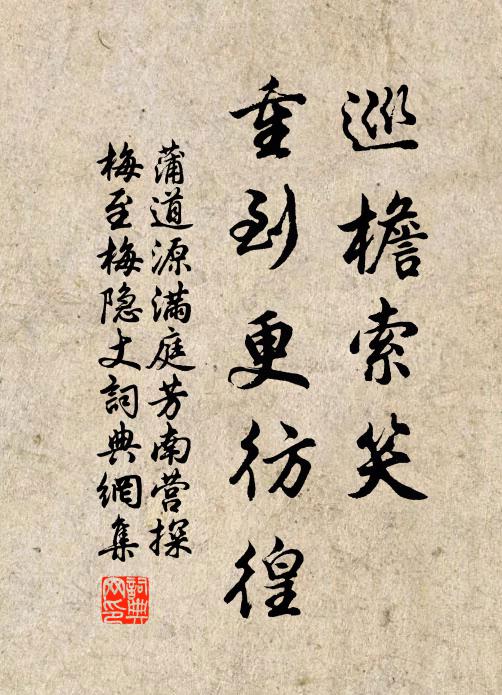 巡檐索笑
重到更彷徨
蒲道源满庭芳南营探
梅至梅隐丈詞典網集
詞典網印